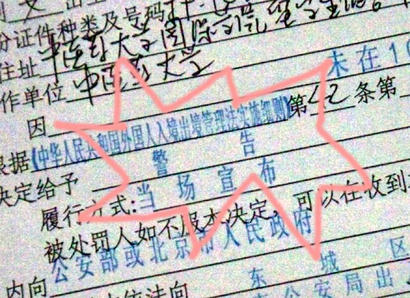 份证件种类及号码
住址 中医药大学国际学院留学生
作单位 中医药大学
因 未在1
根据《中华人民共和国外国人入境出境管理法实施细则》第42条第
决定给予 警告
履行方式: 当场宣布
被处罚人如不服本决定,可以在收到
内向 公安部或北京市人民政府
依法向 东城区
公安局出